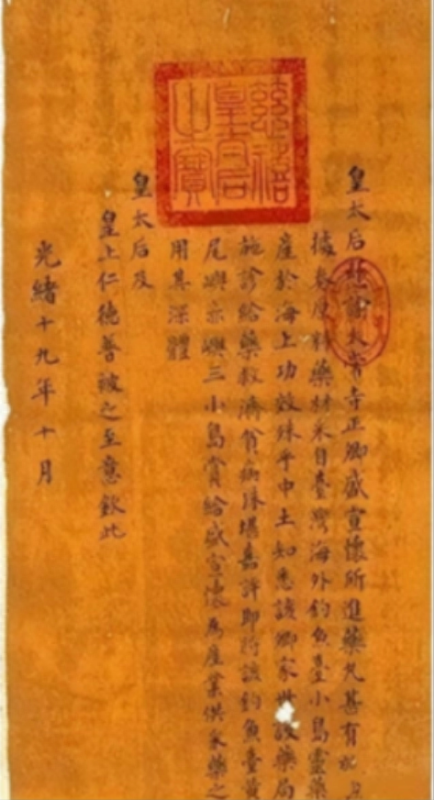 慈禧皇太后之寶
皇太后慈諭太常寺正卿盛宣懷所進藥丸甚有效
據奏原料藥材采自臺灣海外釣魚臺小島靈藥
產於海上功效殊乎中土知悉該卿家世設藥局
施診給藥救濟貧病殊堪嘉許即將該釣魚臺黃
尾嶼赤嶼三小島賞給盛宣懷為產業供采藥之
用其深體
皇太后及
皇上仁德普被之至意欽此
光緒十九年十月